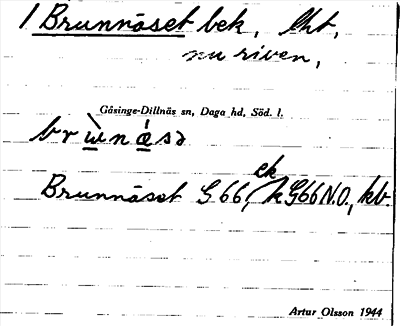 1 Brunnäset bek, lht,
nu riven,
Gåsinge-Dillnäs sn, Daga hd, Söd. l.
brùnǽsə
ek
Brunnäset G 66, k G66 N.O., kb.
Artur Olsson 1944